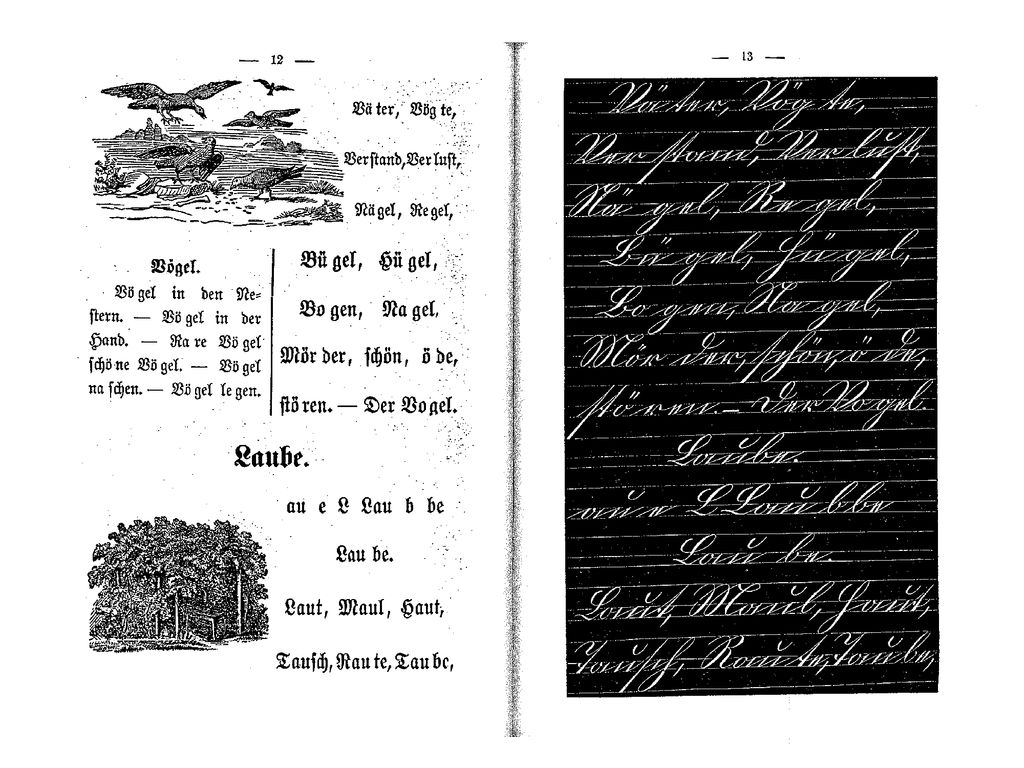 — 12 —
Vä ter, Vög te,
Ver stand, Ver lust,
Nä gel, Re gel,
Vögel.
Vö gel in den Ne=
stern. — Vö gel in der
Hand. — Ra re Vö gel
schö ne Vö gel. — Vö gel
na schen. — Vö gel le gen.
Bü gel, Hü gel,
Bo gen, Na gel,
Mör der, schön, ö de,
stö ren. — Der Vo gel.
Laube.
au e L Lau b be
Lau be.
Laut, Maul, Haut,
Tausch, Rau te, Tau be,
— 13 —
Vä ter, Vög te,
Ver stand, Ver lust,
Nä gel, Re gel,
Bü gel, Hü gel,
Bo gen, Na gel,
Mör der, schön, ö de,
stö ren. — Der Vo gel.
Laube.
au e L Lau b be
Lau be.
Laut, Maul, Haut,
Tausch, Rau te, Tau be,